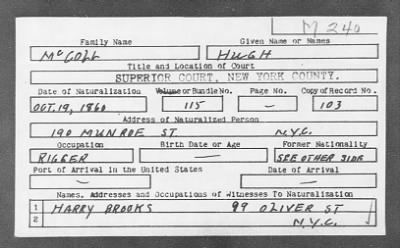 M 240
Family Name Given Name or Names
McCOLL HUGH
Title and Location of Court
SUPERIOR COURT, NEW YORK COUNTY.
Date of Naturalization Volume or Bundle No. Page No. Copy of Record No.
OCT. 19, 1860 115 — 103
Address of Naturalized Person
190 MUNROE ST N.Y.C.
Occupation Birth Date or Age Former Nationality
RIGGER — SEE OTHER SIDE
Port of Arrival in the United States Date of Arrival
— —
Names, Addresses and Occupations of Witnesses To Naturalization
1 HARRY BROOKS 99 OLIVER ST
2 N.Y.C.